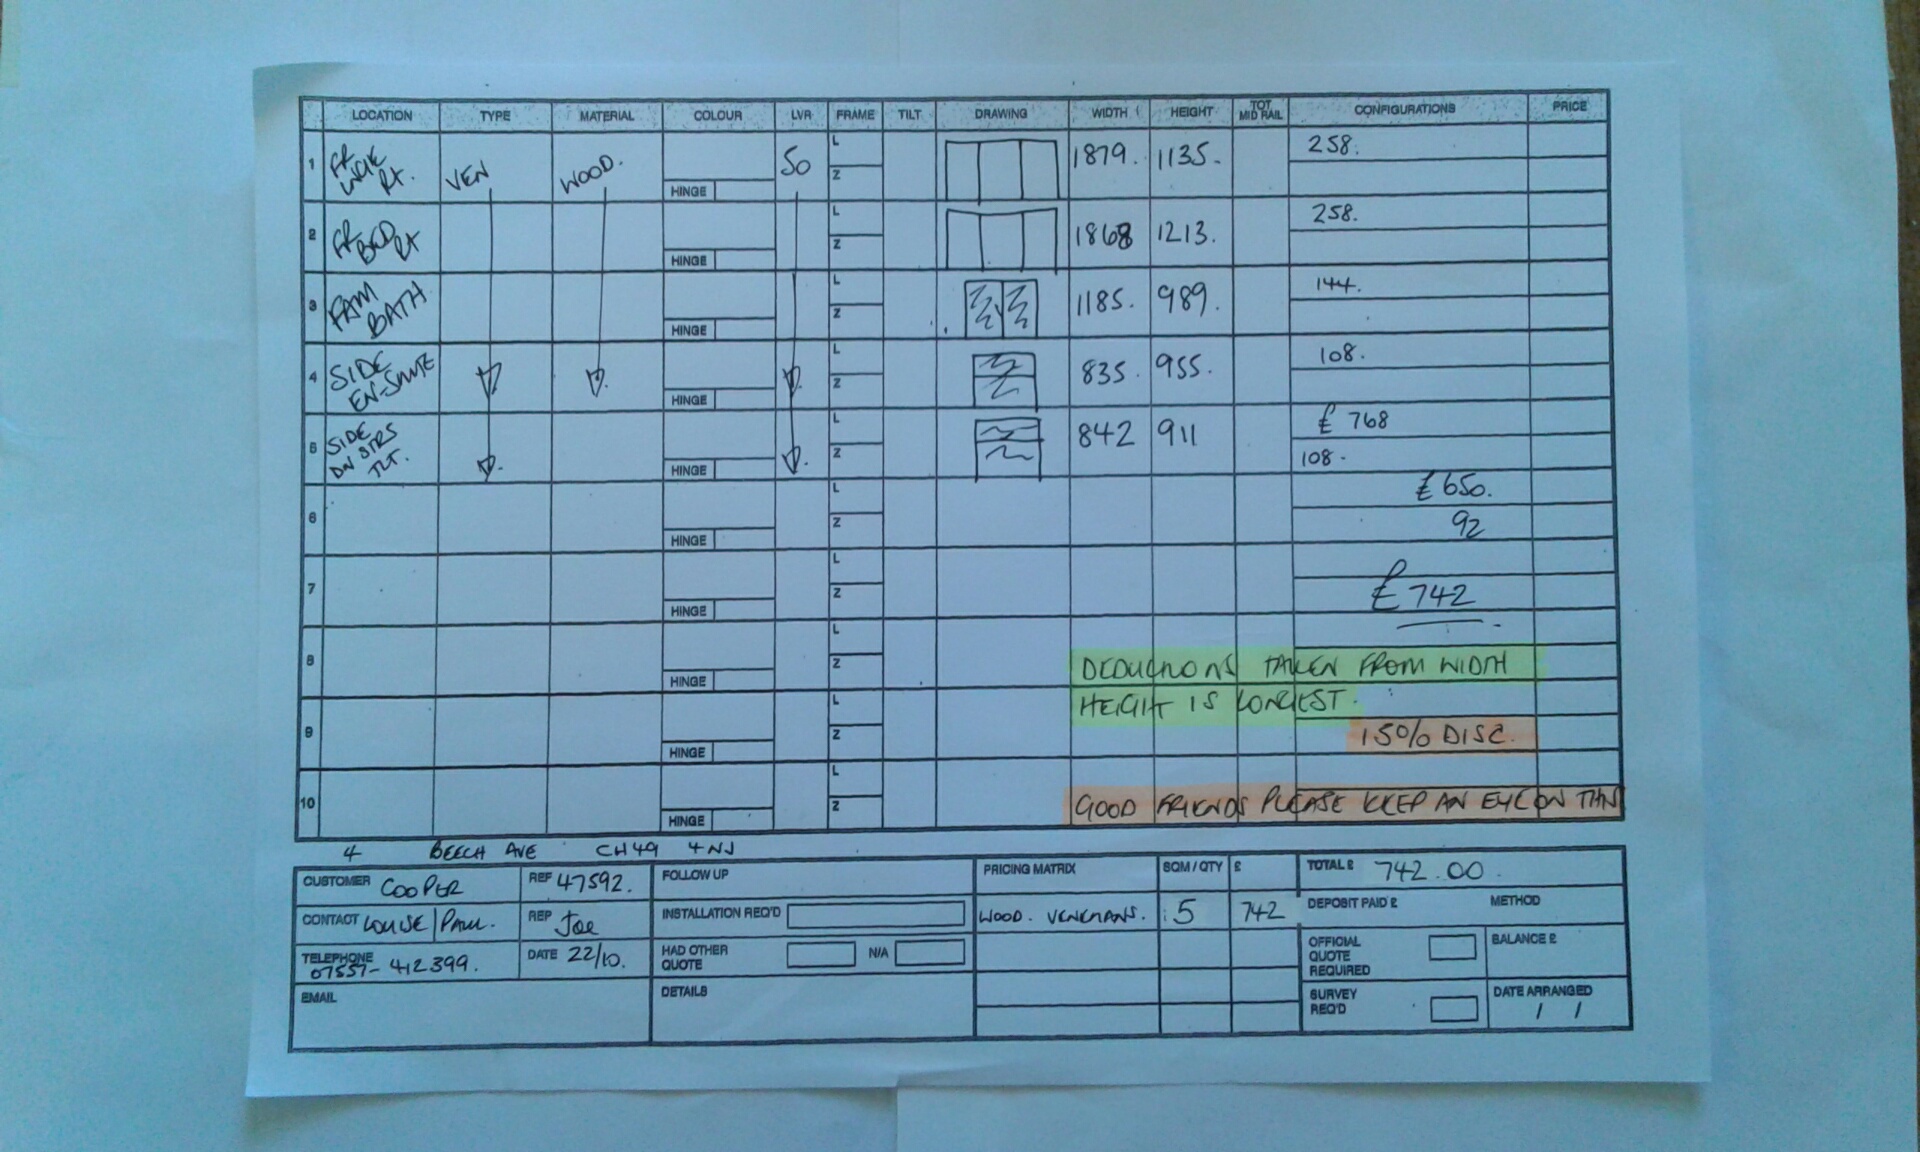 LOCATION TYPE MATERIAL COLOUR LVR FRAME TILT DRAWING WIDTH HEIGHT TOT MID RAIL CONFIGURATIONS PRICE
1 FR VEN WOOD. HINGE 50 L Z 1879. 1135. 258.
2 FR BED HINGE L Z 1868 1213. 258.
3 FAM BATH HINGE L Z 1185. 989. 144.
4 SIDE EN-SUITE HINGE L Z 835. 955. 108.
5 SIDE DN STRS TLT. HINGE L Z 842 911 £ 768
108.
6 HINGE L Z £ 650.
92
7 HINGE L Z £ 742
8 HINGE L Z DEDUCTIONS TAKEN FROM WIDTH
HEIGHT IS LONGEST.
9 HINGE L Z 15% DISC.
10 HINGE L Z GOOD FRIENDS PLEASE KEEP AN EYE ON
4 BEECH AVE CH49 4NJ
CUSTOMER COOPER REF 47592. FOLLOW UP PRICING MATRIX SQM / QTY £ TOTAL £ 742.00.
CONTACT LOUISE/PAUL. REP Joe INSTALLATION REQ'D WOOD. VENETIANS. 5 742 DEPOSIT PAID £ METHOD
TELEPHONE 07557-412399. DATE 22/10. HAD OTHER QUOTE N/A OFFICIAL QUOTE REQUIRED BALANCE £
EMAIL DETAILS SURVEY REQ'D DATE ARRANGED / /